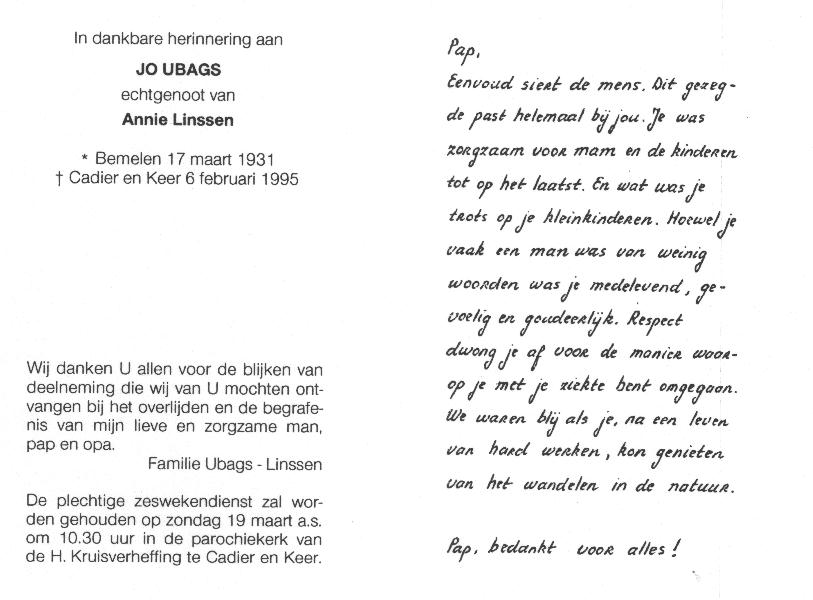 In dankbare herinnering aan
JO UBAGS
echtgenoot van
Annie Linssen
* Bemelen 17 maart 1931
† Cadier en Keer 6 februari 1995
Wij danken U allen voor de blijken van
deelneming die wij van U mochten ont-
vangen bij het overlijden en de begrafe-
nis van mijn lieve en zorgzame man,
pap en opa.
Familie Ubags - Linssen
De plechtige zeswekendienst zal wor-
den gehouden op zondag 19 maart a.s.
om 10.30 uur in de parochiekerk van
de H. Kruisverheffing te Cadier en Keer.
Pap,
Eenvoud siert de mens. Dit gezeg-
de past helemaal bij jou. Je was
zorgzaam voor mam en de kinderen
tot op het laatst. En wat was je
trots op je kleinkinderen. Hoewel je
vaak een man was van weinig
woorden was je medelevend, ge-
voelig en goudeerlijk. Respect
dwong je af voor de manier waar-
op je met je ziekte bent omgegaan.
We waren blij als je, na een leven
van hard werken, kon genieten
van het wandelen in de natuur.
Pap, bedankt voor alles!